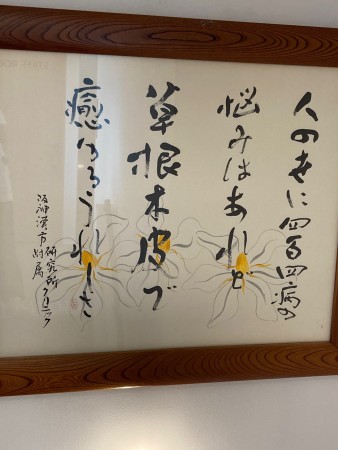 人の世に四百四病の
悩みはあれど
草根木皮で
癒ゆるうれしさ
阪神漢方研究所
附属クリニック